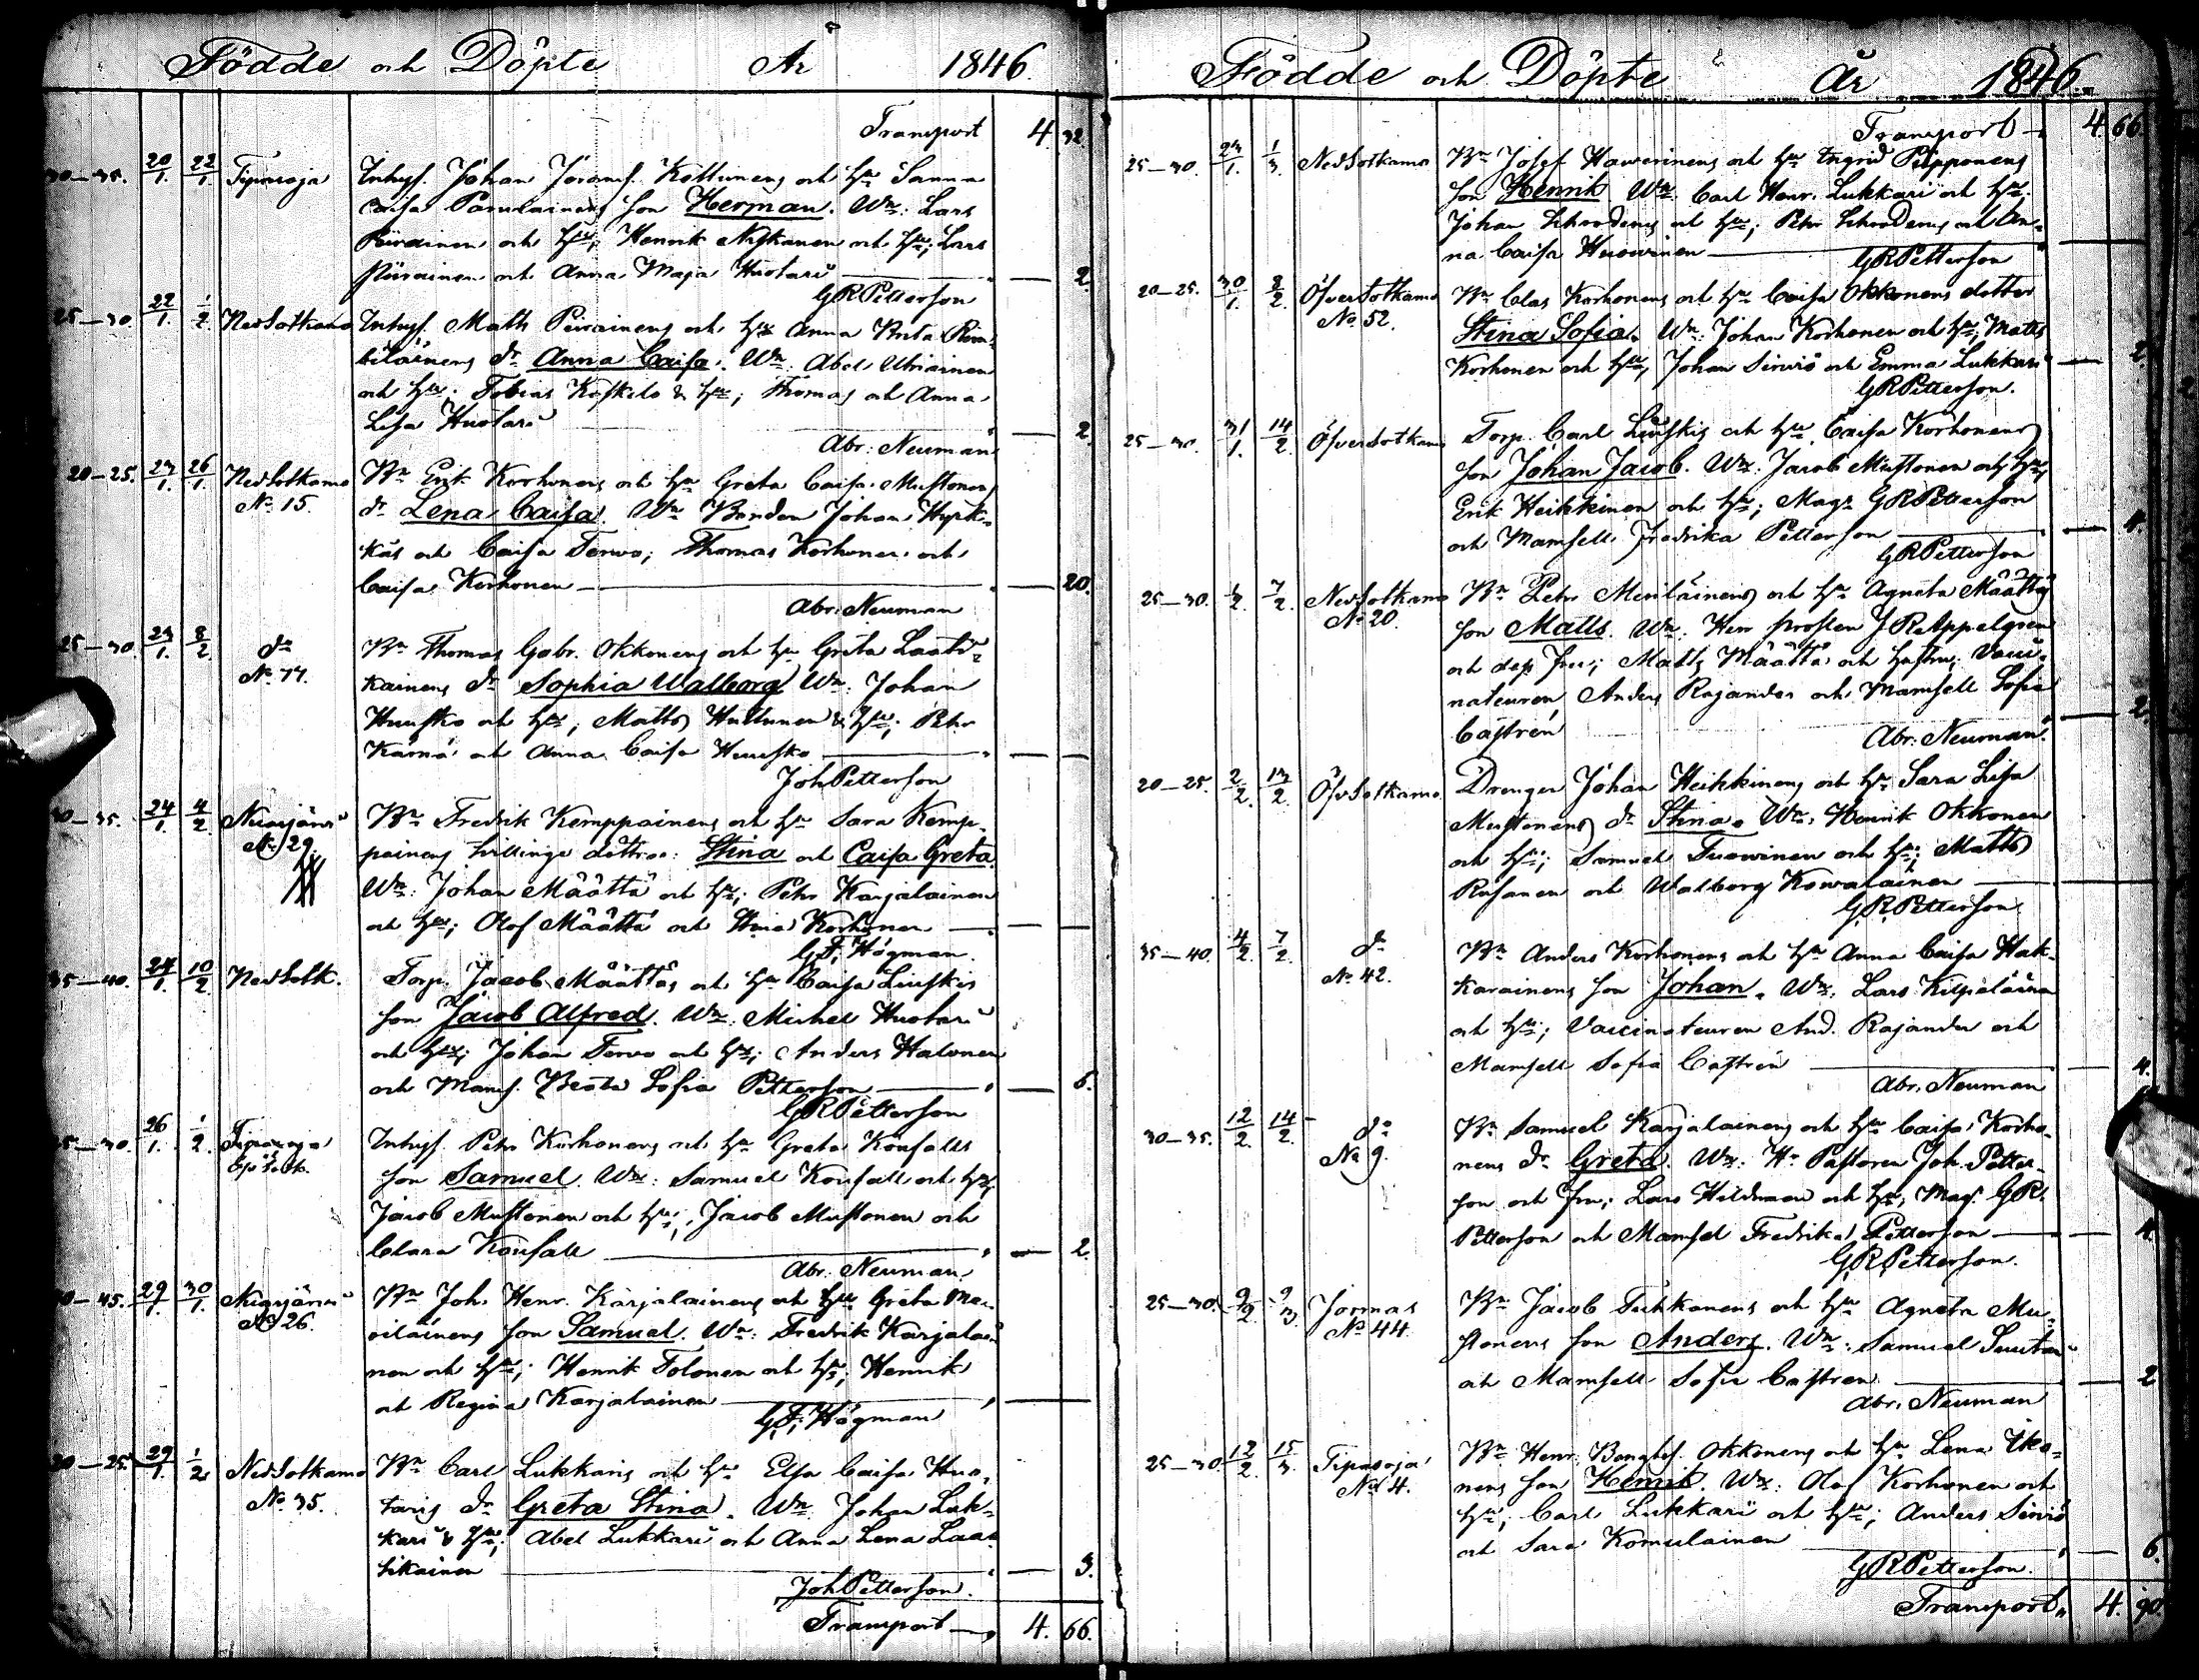 Födde och Döpte År 1846.
Transport 4 32.
30–35. 20/1. 22/1. Tipasoja Inhys. Johan Joranss. Kettunens och hu Sanna
Caisa Parulainens son Herman. Wn: Lars
Piirainen och hu; Henrik Niskanen och hu; Lars
Piirainen och Anna Maja Huotari — 2.
GRPetterson
25–30. 22/1. 1/2. NedSotkamo Inhys. Matts Piirainens och hu Anna Brita
dr Anna Caisa. Wn: Abel
och hu; Tobias Koskelo & hu; Thomas och Anna
Lisa Huotari — 2.
Abr: Neuman
20–25. 23/1. 26/1. NedSotkamo Bn Erik Korhonens och hu Greta Caisa Mustonens
No 15. dr Lena Caisa. Wn Bonden Johan Hyrk-
käs och Caisa Tervo; Thomas Korhonen och
Caisa Korhonen — 20.
Abr: Neuman
25–30. 23/1. 8/2. do Bn Thomas Gabr. Okkonens och hu Greta Laati-
No 77. kainens dr Sophia Walborg Wn: Johan
Huusko och hu; Matts Huttunen & hu; Petr
Kärnä och Anna Caisa Huusko —
JohPetterson
24/1. 4/2. Bn Fredrik Kemppainens och hu Sara Kemp-
No 29. painens tvillinge döttrar: Stina och Caisa Greta.
Wn: Johan Määttä och hu; Petr Karjalainen
och hu; Olof Määttä och Stina Korhonen —
G.F. Högman.
35–40. 24/1. 10/2. NedSotk. Torp. Jacob Määttäs och hu Caisa Liuskis
son Jacob Alfred. Wn: Michel Huotari
och hu; Johan Tervo och hu; Anders Halonen
och Mams. Beata Sofia Petterson — 6.
GRPetterson
25–30. 26/1. 1/2. Tipasoja Inhys. Petr Korhonens och hu Greta Könfalls
son Samuel. Wn: Samuel Könfall och hu;
Jacob Mustonen och hu; Jacob Mustonen och
Clara Könfall — 2.
Abr. Neuman.
40–45. 29/1. 30/1. Bn Joh. Henr. Karjalainens och hu Greta Me-
No 26. riläinens son Samuel. Wn: Fredrik Karjalai-
nen och hu; Henrik Tolonen och hu; Henrik
och Regina Karjalainen —
G.F. Högman
20–25. 29/1. 1/2. NedSotkamo Bn Carl Lukkaris och hu Elsa Caisa Huo-
No 35. taris dr Greta Stina. Wn Johan Luk-
kari & hu; Abel Lukkari och Anna Lena Laa-
tikainen — 3.
JohPetterson.
Transport — 4. 66.
Födde och Döpte År 1846.
Transport — 4. 66.
25–30. 23/1. 1/3. NedSotkamo Bn Josef Hawerinens och hu Ingrid Pipponens
son Henrik Wn: Carl Henr. Lukkari och hu;
Johan Schroderus och hu; Petr Schroderus och An-
na Caisa Huowinen —
GRPetterson
20–25. 30/1. 8/2. ÖfverSotkamo Bn Clas Korhonens och hu Caisa Okkonens dotter
No 52. Stina Sofia. Wn: Johan Korhonen och hu; Matts
Korhonen och hu, Johan Sirviö och Emma Lukkari — 2.
GRPetterson.
25–30. 31/1. 14/2. ÖfverSotkamo Torp. Carl Liuskis och hu Caisa Korhonens
son Johan Jacob. Wn: Jacob Mustonen och hu;
Erik Heikkinen och hu; Magr GRPetterson
och Mamsell Fredrika Petterson — 4.
GRPetterson
25–30. 1/2. 7/2. NedSotkamo Bn Petr Meriläinens och hu Agneta Määttäs
No 20. son Matts. Wn: Herr Prosten J R Appelgren
och dess fru; Matts Määttä och hustru; Vacci-
nateuren Anders Rajander och Mamsell Sofia
Castrén — 2.
Abr: Neuman.
20–25. 2/2. 13/2. ÖfvSotkamo. Drengen Johan Heikkinens och hu Sara Lisa
Mustonens dr Stina. Wn: Henrik Okkonen
och hu; Samuel Tuowinen och hu; Matts
Rusanen och Walborg Kowalainen —
GRPetterson
35–40. 4/2. 7/2. do Bn Anders Korhonens och hu Anna Caisa Hak-
No 42. karainens son Johan. Wn: Lars Kilpeläinen
och hu; Vaccinateuren And. Rajander och
Mamsell Sofia Castrén — 4.
Abr. Neuman
30–35. 12/2. 14/2. do Bn Samuel Karjalainens och hu Caisa Korho-
No 9. nens dr Greta. Wn: Hr Pastoren Joh. Petter-
son och fru; Lars Heldman och hu; Mag. GR.
Petterson och Mamsel Fredrika Petterson — 4.
GRPetterson.
25–30. 9/2. 9/3. Jormas Bn Jacob Tuhkanens och hu Agneta Mu-
No 44. stonens son Anders. Wn: Samuel
och Mamsell Sofia Castren — 2
Abr. Neuman
25–30. 12/2. 15/3. Tipasoja Bn Henr. Bengtss. Okkonens och hu Lena
No 4. nens son Henrik. Wn: Olof Korhonen och
hu; Carl Lukkari och hu; Anders Sirviö
och Sara Komulainen — 6.
GRPetterson.
Transport 4. 90.